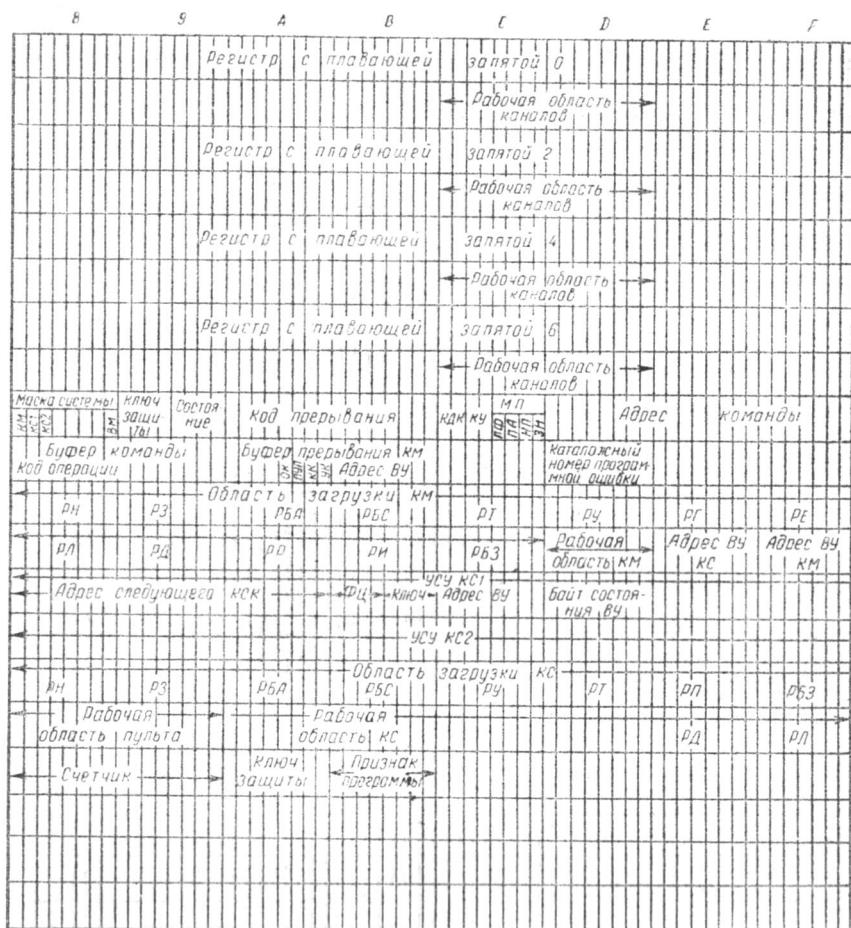 8 9 A B C D E F
Регистр с плавающей запятой 0
Рабочая область
каналов
Регистр с плавающей запятой 2
Рабочая область
каналов
Регистр с плавающей запятой 4
Рабочая область
каналов
Регистр с плавающей запятой 6
Рабочая область
каналов
Маска системы
КМ КС1 КС2 ВМ
Ключ
защи-
ты
Состоя-
ние
Код прерывания
КДК КУ
МП
ПФ ПА ИП ЗН
Адрес команды
Буфер команды
Код операции
Буфер прерывания КМ
ОК ПУП КК УК Адрес ВУ
Каталожный
номер програм-
мной ошибки
Область загрузки КМ
РН РЗ РБА РБС РТ РУ РГ РЕ
РЛ РД РО РИ РБЗ
Рабочая
область КМ
Адрес ВУ
КС
Адрес ВУ
КМ
УСУ КС1
Адрес следующего КСК ФЦ Ключ Адрес ВУ
Байт состоя-
ния ВУ
УСУ КС2
Область загрузки КС
РН РЗ РБА РБС РУ РТ РП РБЗ
Рабочая
область пульта
Рабочая
область КС
РД РЛ
Счетчик
Ключ
защиты
Признак
программы